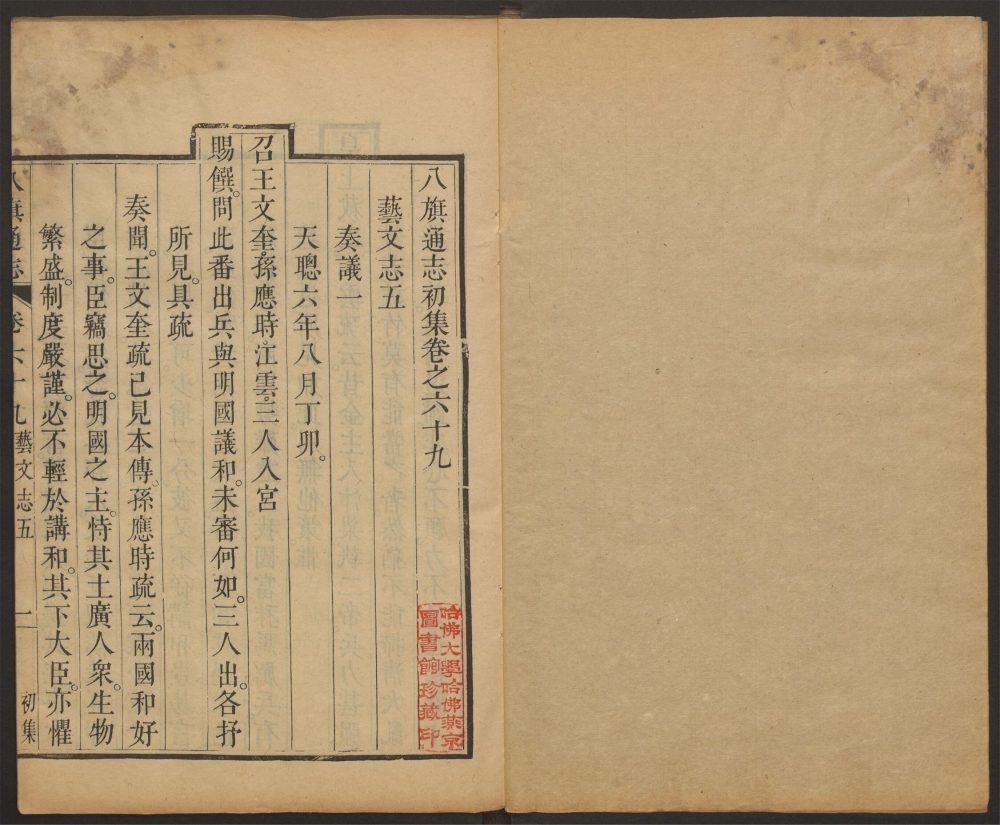 八旗通志初集卷之六十九
藝文志五
奏議一
天聰六年八月丁卯。
召王文奎。孫應時。江雲。三人入宮
賜饌。問此番出兵與明國議和。未審何如。三人出。各抒
所見。具疏
奏聞。王文奎疏已見本傳。孫應時疏云。兩國和好
之事。臣竊思之。明國之主。恃其土廣人衆。生物
繁盛。制度嚴謹。必不輕於講和。其下大臣。亦懼
八旗通志 卷六十九 藝文志五 一 初集
哈佛大學哈佛燕京
圖書館珍藏印